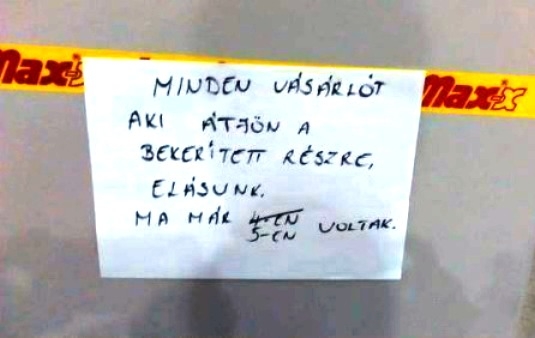 Maxx
Maxx
MINDEN VÁSÁRLÓT
AKI ÁTJÖN A
BEKERÍTETT RÉSZRE,
ELÁSUNK.
MA MÁR 4-EN
5-EN VOLTAK.